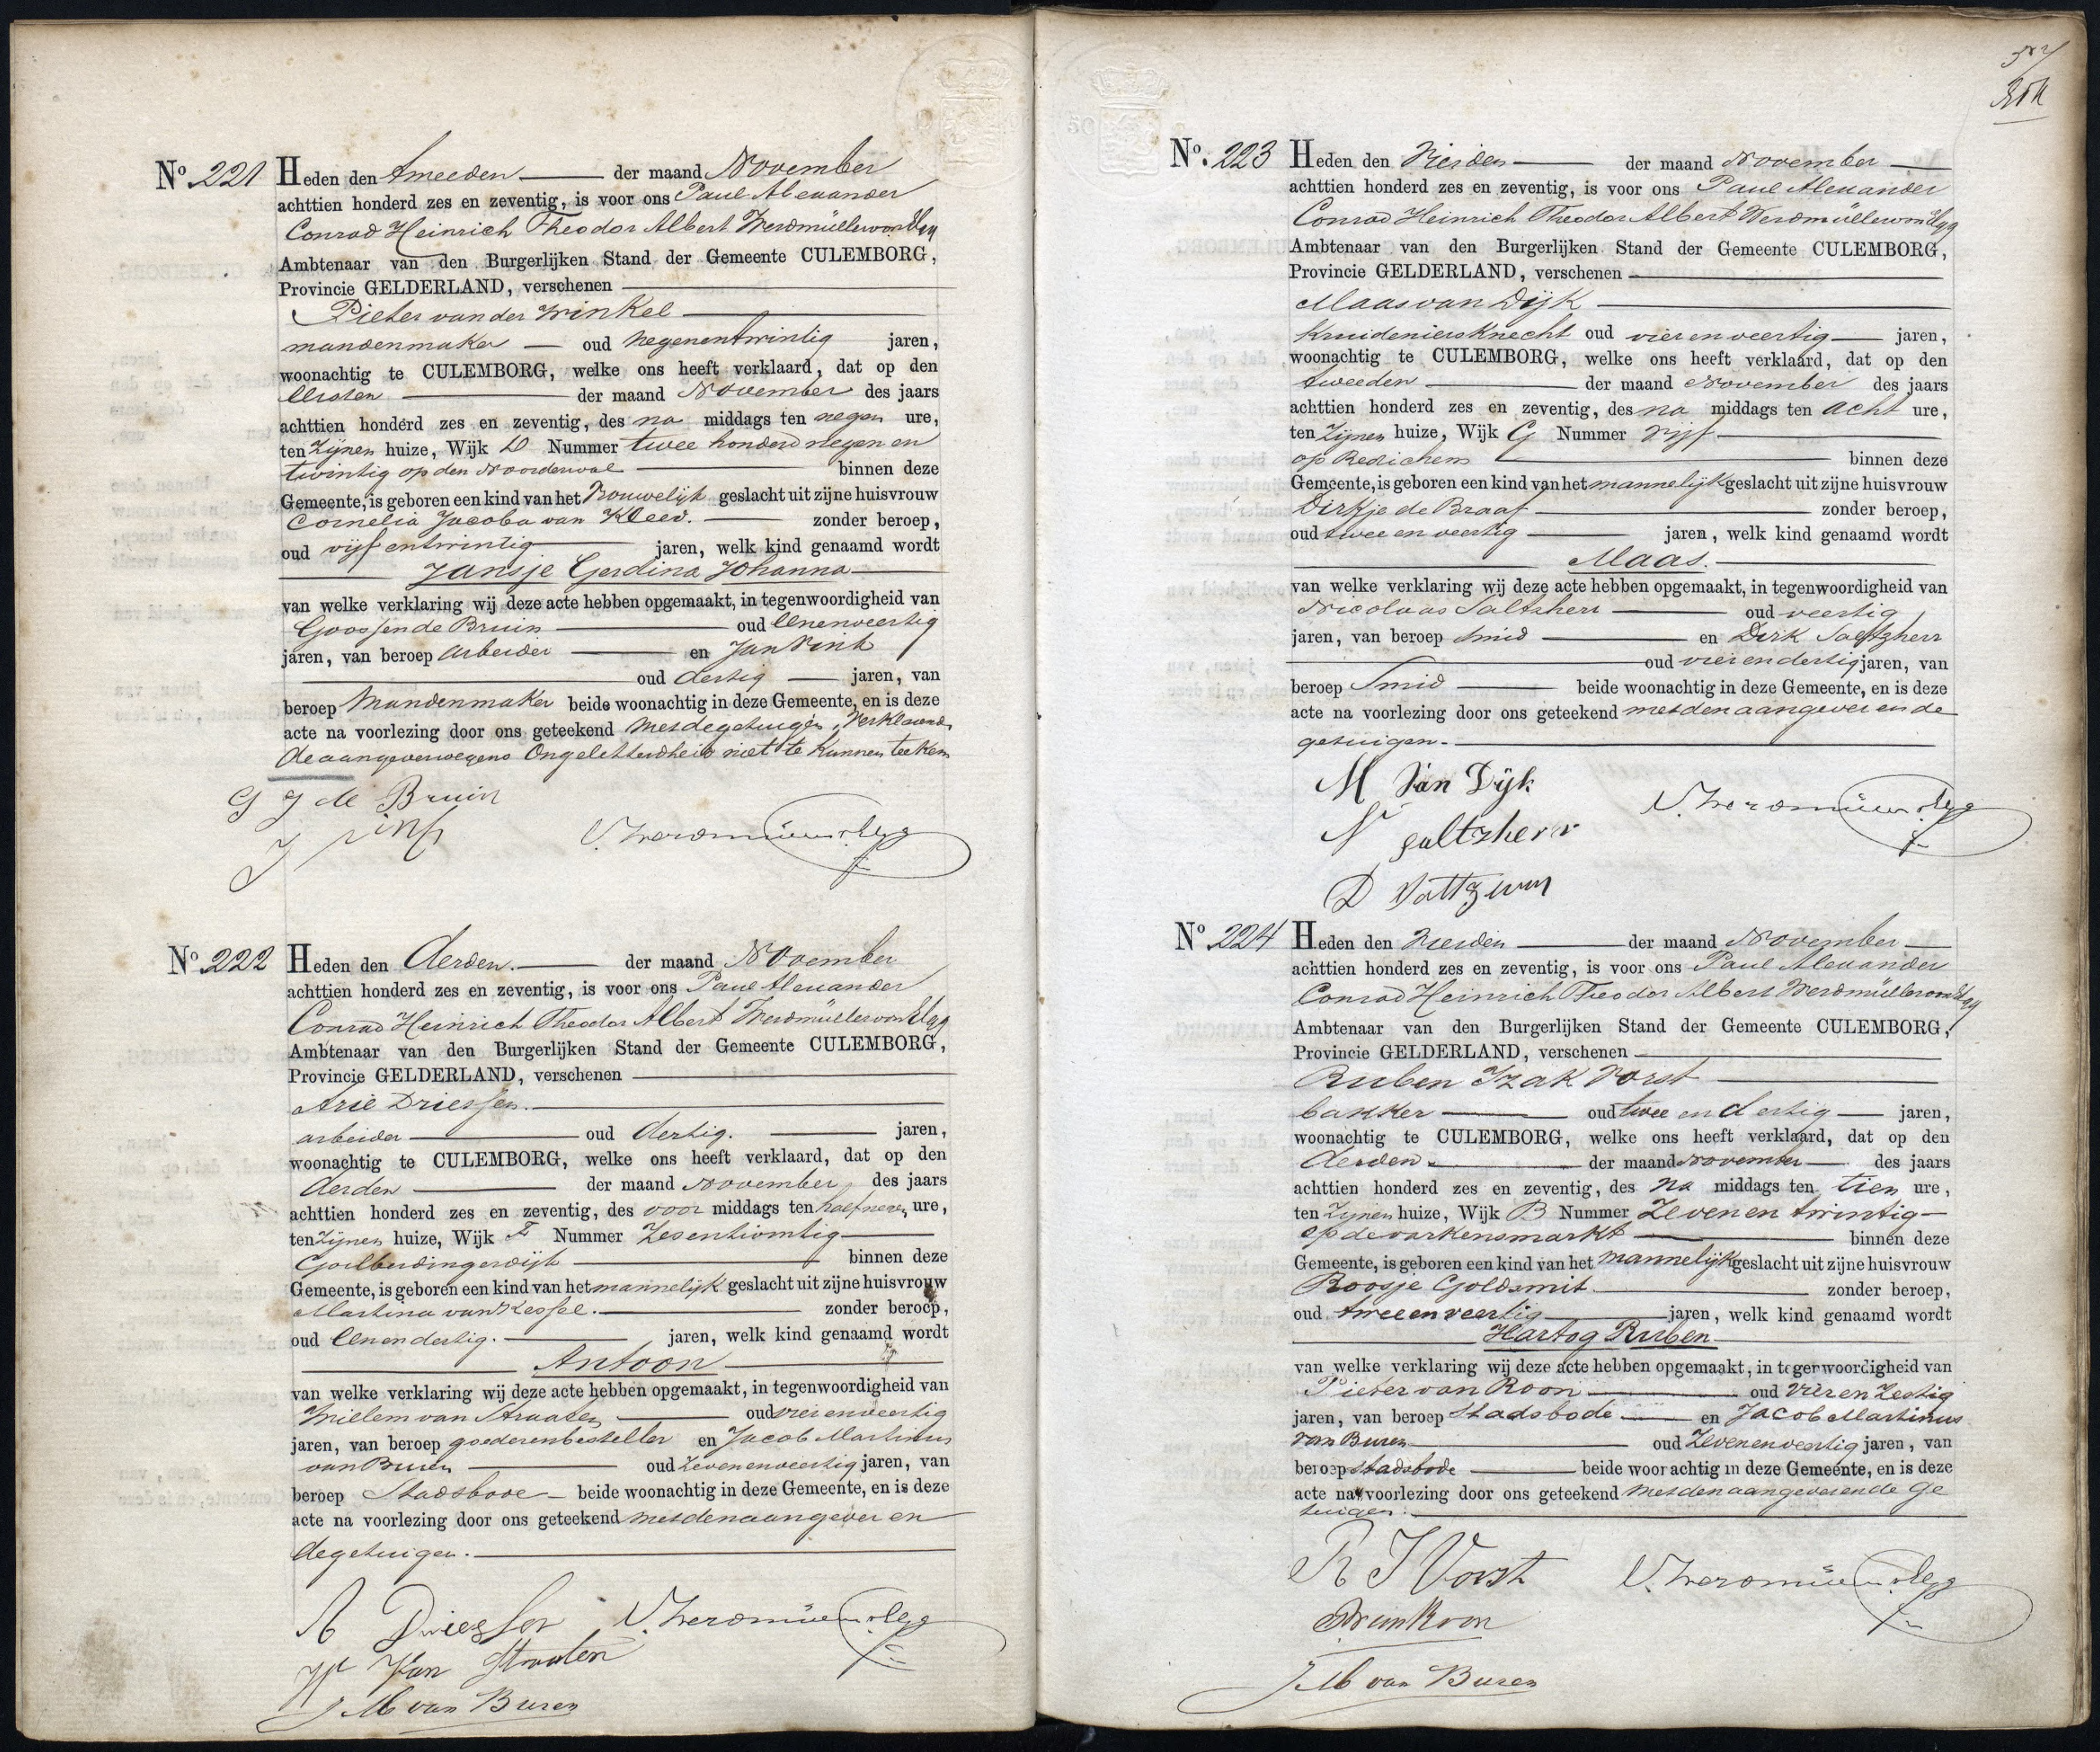 No 221 Heden den tweeden der maand November
achttien honderd zes en zeventig, is voor ons Paul Alexander
Conrad Heinrich Theodor Albert Werdmüller von Elgg
Ambtenaar van den Burgerlijken Stand der Gemeente CULEMBORG,
Provincie GELDERLAND, verschenen
Pieter van der Winkel
mandenmaker oud negenentwintig jaren,
woonachtig te CULEMBORG, welke ons heeft verklaard, dat op den
Eersten der maand November des jaars
achttien honderd zes en zeventig, des na middags ten negen ure,
ten Zijnen huize, Wijk D Nummer twee honderd negen en
twintig op den Noorderwal binnen deze
Gemeente, is geboren een kind van het Vrouwelijk geslacht uit zijne huisvrouw
Cornelia Jacoba van Kleed. zonder beroep,
oud vijf entwintig jaren, welk kind genaamd wordt
Jansje Gerdina Johanna
van welke verklaring wij deze acte hebben opgemaakt, in tegenwoordigheid van
Goossen de Bruin oud Eenenveertig
jaren, van beroep arbeider en Jan Pink
oud dertig jaren, van
beroep Mandenmaker beide woonachtig in deze Gemeente, en is deze
acte na voorlezing door ons geteekend met de getuigen, Verklarende
de aangever wegens Ongeletterdheid niet te kunnen teeken
G J de Bruin
J Pink
V. Werdmüller v. Elgg
No 222 Heden den derden. der maand November
achttien honderd zes en zeventig, is voor ons Paul Alexander
Conrad Heinrich Theodor Albert Werdmüller von Elgg
Ambtenaar van den Burgerlijken Stand der Gemeente CULEMBORG,
Provincie GELDERLAND, verschenen
Arie Driessen.
arbeider oud dertig. jaren,
woonachtig te CULEMBORG, welke ons heeft verklaard, dat op den
derden der maand November des jaars
achttien honderd zes en zeventig, des voor middags ten half negen ure,
ten Zijnen huize, Wijk F Nummer Zesentwintig
Goilberdingerdijk binnen deze
Gemeente, is geboren een kind van het mannelijk geslacht uit zijne huisvrouw
Martina van Kessel. zonder beroep,
oud Eenendertig. jaren, welk kind genaamd wordt
Antoon
van welke verklaring wij deze acte hebben opgemaakt, in tegenwoordigheid van
Willem van Straaten oud vierenveertig
jaren, van beroep goederenbesteller en Jacob Martinus
van Buren oud Zevenenveertig jaren, van
beroep Stadsbode beide woonachtig in deze Gemeente, en is deze
acte na voorlezing door ons geteekend met den aangever en
de getuigen.
A Driessen V. Werdmüller v. Elgg
W Van Straaten
J M van Buren
No. 223 Heden den Vierden der maand November
achttien honderd zes en zeventig, is voor ons Paul Alexander
Conrad Heinrich Theodor Albert Werdmüller von Elgg
Ambtenaar van den Burgerlijken Stand der Gemeente CULEMBORG,
Provincie GELDERLAND, verschenen
Maas van Dijk
Kruideniersknecht oud vierenveertig jaren,
woonachtig te CULEMBORG, welke ons heeft verklaard, dat op den
tweeden der maand November des jaars
achttien honderd zes en zeventig, des na middags ten acht ure,
ten Zijnen huize, Wijk G Nummer Vijf
op Redichem binnen deze
Gemeente, is geboren een kind van het mannelijk geslacht uit zijne huisvrouw
Dirkje de Braaf zonder beroep,
oud twee en veertig jaren, welk kind genaamd wordt
Maas.
van welke verklaring wij deze acte hebben opgemaakt, in tegenwoordigheid van
Nicolaas Saltzherr oud veertig
jaren, van beroep Smid en Dirk Saltzherr
oud vierendertig jaren, van
beroep Smid beide woonachtig in deze Gemeente, en is deze
acte na voorlezing door ons geteekend met den aangever en de
getuigen.
M Van Dijk
N saltzherr V. Werdmüller v. Elgg
D
No 224 Heden den Vierden der maand November
achttien honderd zes en zeventig, is voor ons Paul Alexander
Conrad Heinrich Theodor Albert Werdmüller von Elgg
Ambtenaar van den Burgerlijken Stand der Gemeente CULEMBORG,
Provincie GELDERLAND, verschenen
Ruben Izak Vorst
banker oud twee en dertig jaren,
woonachtig te CULEMBORG, welke ons heeft verklaard, dat op den
derden der maand November des jaars
achttien honderd zes en zeventig, des na middags ten tien ure,
ten Zijnen huize, Wijk B Nummer Zevenen twintig
op de varkensmarkt binnen deze
Gemeente, is geboren een kind van het mannelijk geslacht uit zijne huisvrouw
Roosje Goldsmit. zonder beroep,
oud tweeenveertig jaren, welk kind genaamd wordt
Hartog Ruben
van welke verklaring wij deze acte hebben opgemaakt, in tegenwoordigheid van
Pieter van Roon oud Vieren Zestig
jaren, van beroep Stadsbode en Jacob Martinus
van Buren oud Zevenenveertig jaren, van
beroep stadsbode beide woonachtig in deze Gemeente, en is deze
acte na voorlezing door ons geteekend met den aangever en de ge
tuigen.
R I Vorst V. Werdmüller v. Elgg
P van Roon
J M van Buren